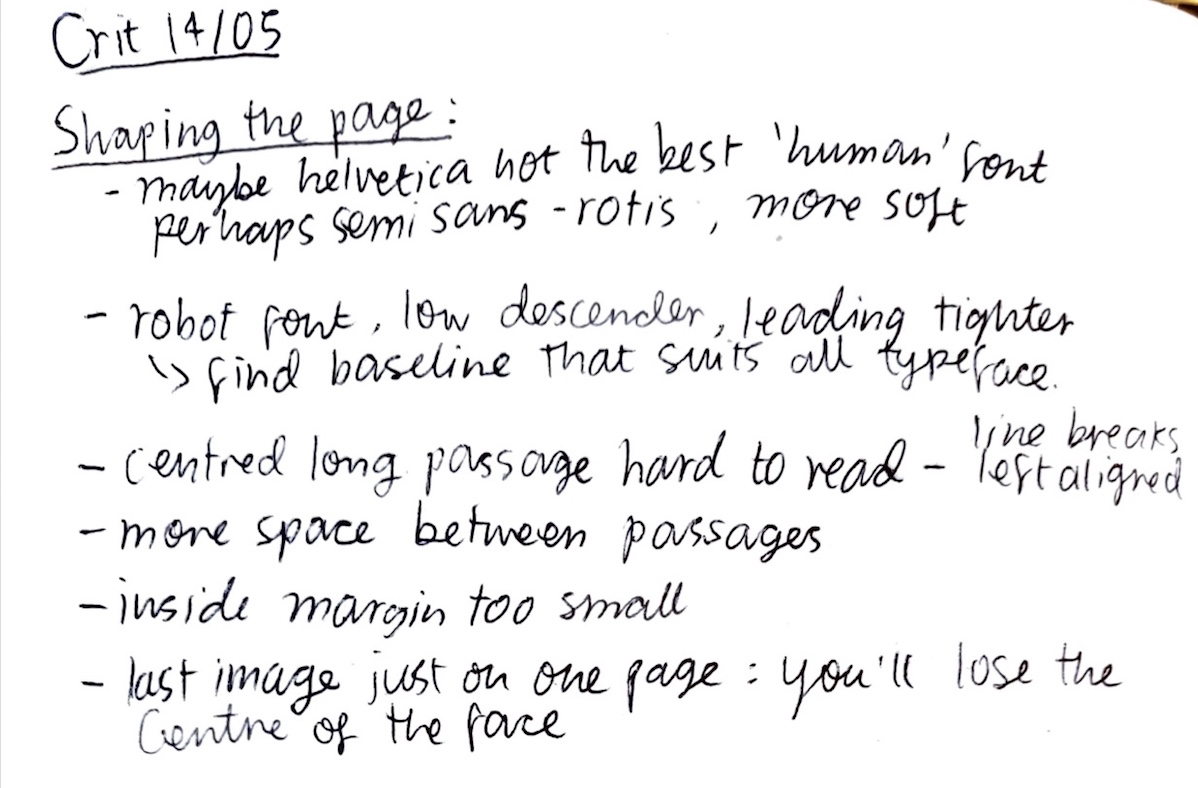 Crit 14/05
Shaping the page:
- maybe helvetica not the best 'human' font
perhaps semi sans - rotis, more soft
- robot font, low descender, leading tighter
↳ find baseline that suits all typeface.
- centred long passage hard to read - line breaks
left aligned
- more space between passages
- inside margin too small
- last image just on one page : you'll lose the
Centre of the face